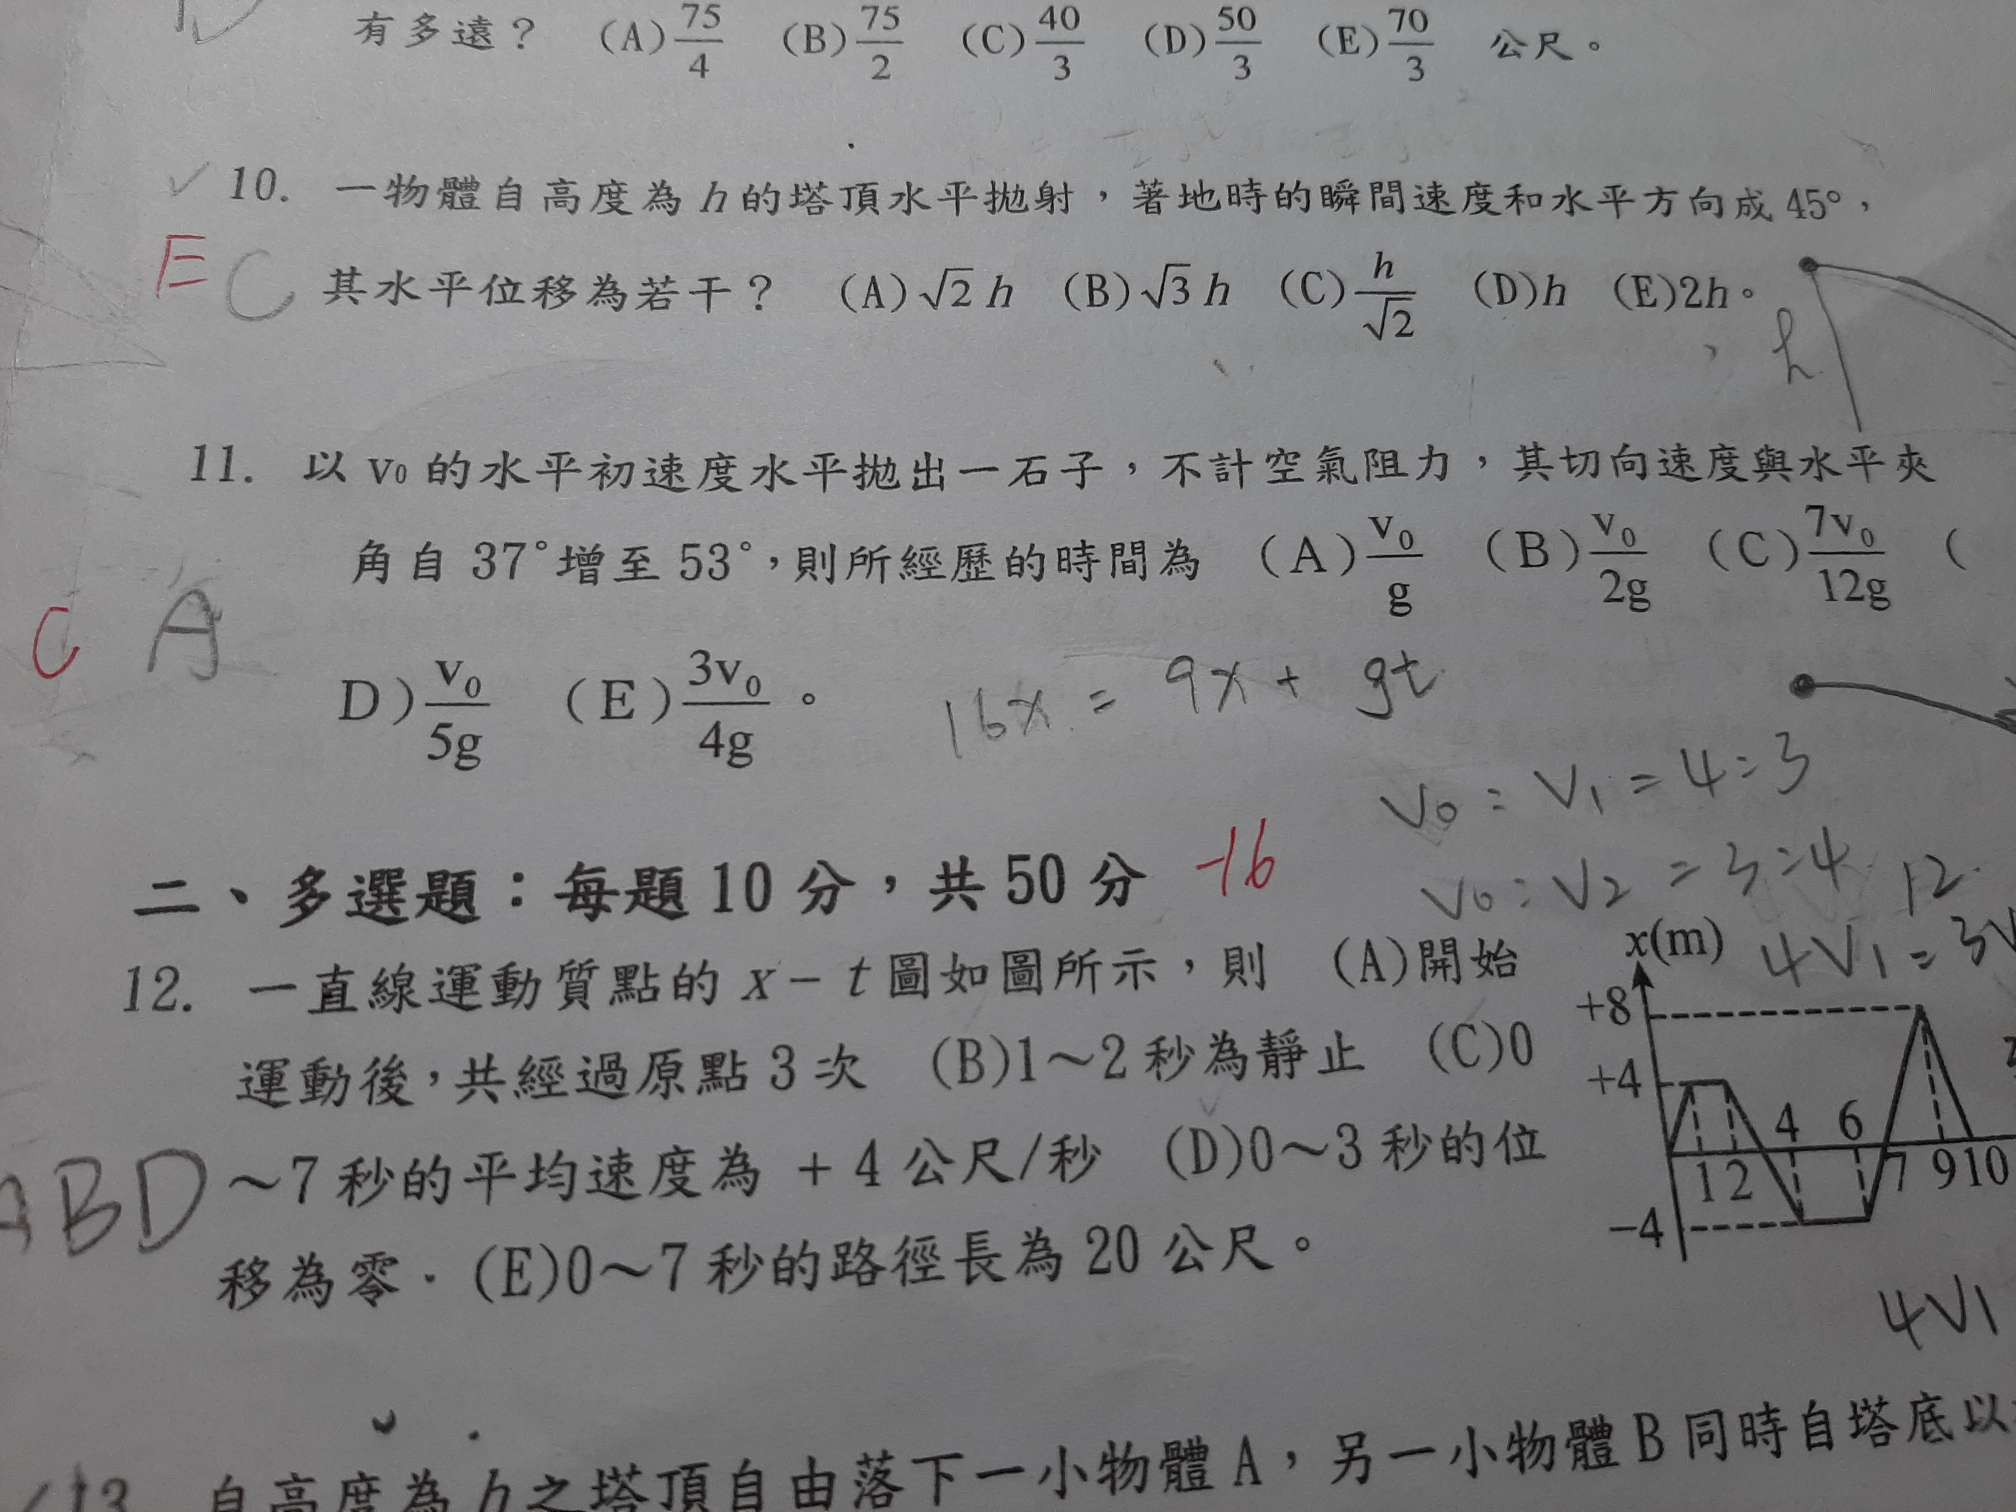 有多遠？ (A)75/4 (B)75/2 (C)40/3 (D)50/3 (E)70/3 公尺。
✓ 10. 一物體自高度為 h 的塔頂水平拋射，著地時的瞬間速度和水平方向成 45°，
E C 其水平位移為若干？ (A)√2 h (B)√3 h (C)h/√2 (D)h (E)2h。
h
11. 以 v₀ 的水平初速度水平拋出一石子，不計空氣阻力，其切向速度與水平夾
角自 37°增至 53°，則所經歷的時間為 (A)v₀/g (B)v₀/2g (C)7v₀/12g (
C A
D)v₀/5g (E)3v₀/4g。
16x = 9x + gt
V₀ : V₁ = 4:3
V₀ : V₂ = 3:4
12
4V₁ = 3V
二、多選題：每題 10 分，共 50 分 -16
12. 一直線運動質點的 x－t 圖如圖所示，則 (A)開始
運動後，共經過原點 3 次 (B)1～2 秒為靜止 (C)0
ABD ～7 秒的平均速度為 ＋4 公尺/秒 (D)0～3 秒的位
移為零．(E)0～7 秒的路徑長為 20 公尺。
x(m)
+8
+4
4 6
1 2 7 9 10
-4
4V₁
13 自高度為 h 之塔頂自由落下一小物體 A，另一小物體 B 同時自塔底以